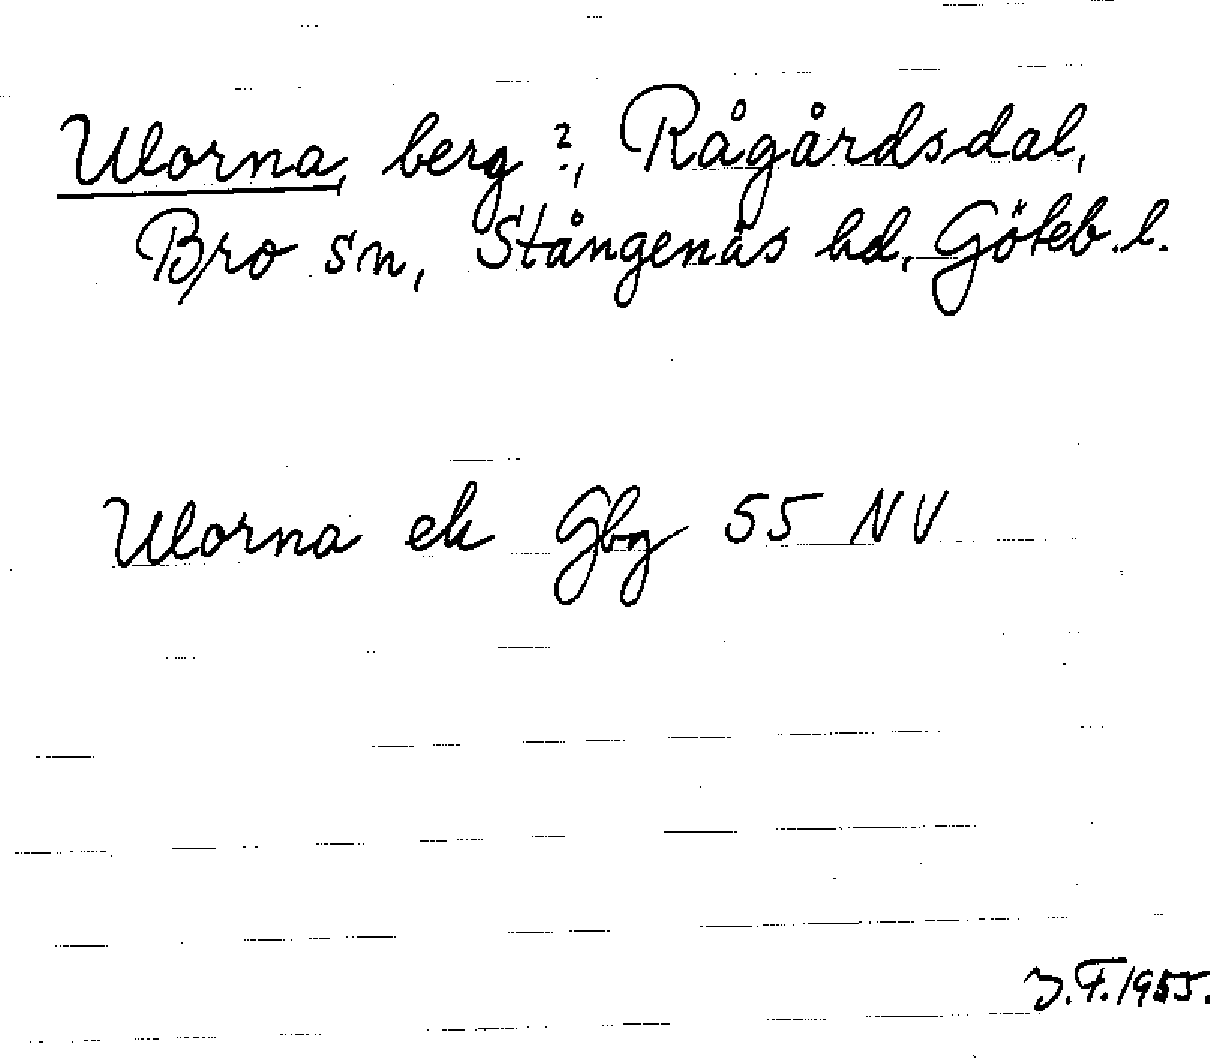 Ulorna, berg?, Rågårdsdal,
Bro sn, Stångenäs hd, Göteb. l.
Ulorna ek Gbg 55 NV
J.F. 1955.